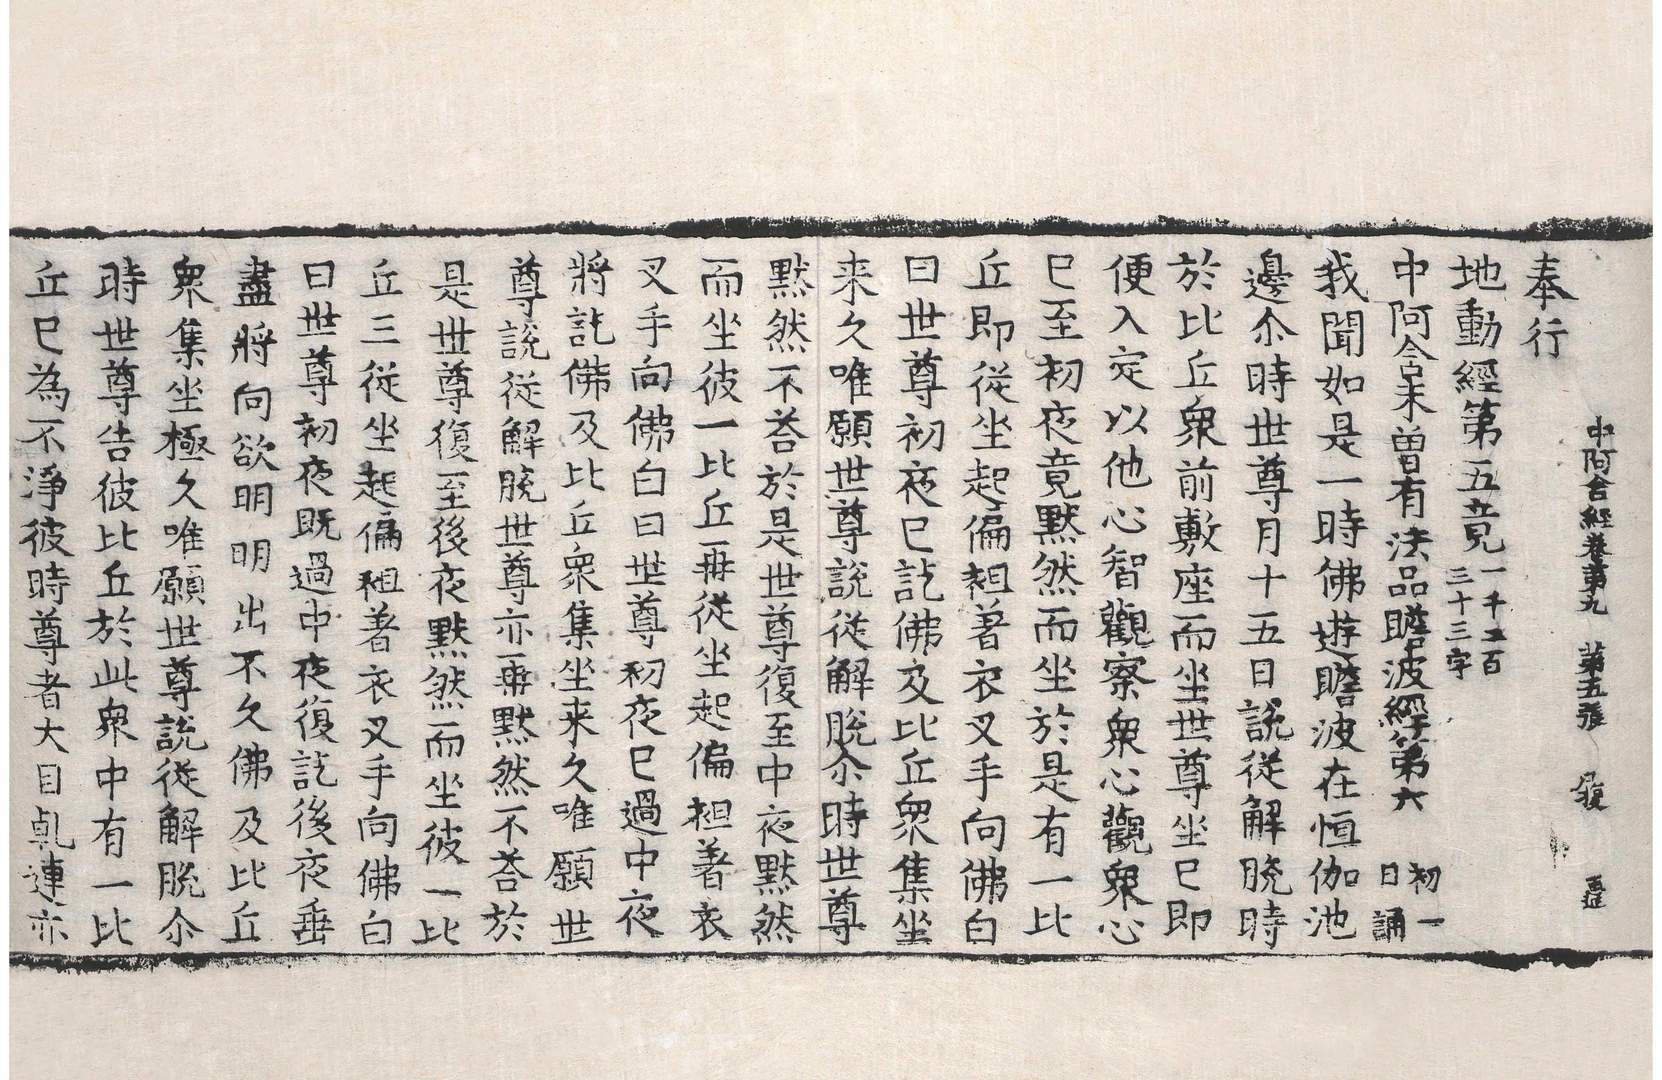 中阿含經卷第九 第五張 履
奉行
地動經第五竟一千五百三十三字
中阿含未曾有法品瞻波經第六初一日誦
我聞如是一時佛遊瞻波在恒伽池
邊尒時世尊月十五日說從解脫時
於比丘衆前敷座而坐世尊坐已即
便入定以他心智觀察衆心觀衆心
已至初夜竟默然而坐於是有一比
丘即從坐起偏袒著衣叉手向佛白
曰世尊初夜已訖佛及比丘衆集坐
来久唯願世尊說從解脫尒時世尊
默然不荅於是世尊復至中夜默然
而坐彼一比丘再從坐起偏袒著衣
叉手向佛白曰世尊初夜已過中夜
將訖佛及比丘衆集坐来久唯願世
尊說從解脫世尊亦再默然不荅於
是世尊復至後夜默然而坐彼一比
丘三從坐起偏袒著衣叉手向佛白
曰世尊初夜既過中夜復訖後夜垂
盡將向欲明明出不久佛及比丘
衆集坐極久唯願世尊說從解脫尒
時世尊告彼比丘於此衆中有一比
丘已為不淨彼時尊者大目乹連亦